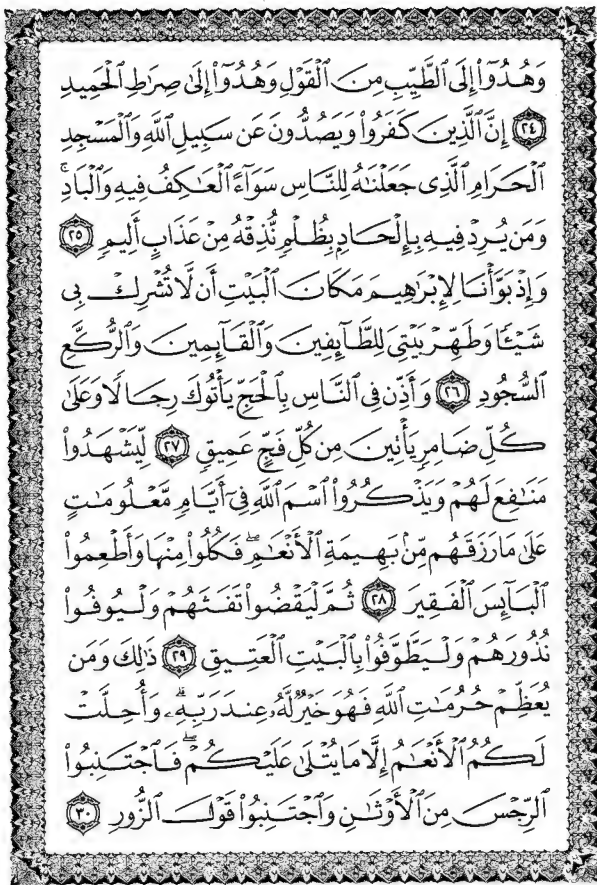 وَهُدُوٓاْ إِلَى ٱلطَّيِّبِ مِنَ ٱلْقَوْلِ وَهُدُوٓاْ إِلَىٰ صِرَٰطِ ٱلْحَمِيدِ
٢٤ إِنَّ ٱلَّذِينَ كَفَرُواْ وَيَصُدُّونَ عَن سَبِيلِ ٱللَّهِ وَٱلْمَسْجِدِ
ٱلْحَرَامِ ٱلَّذِى جَعَلْنَٰهُ لِلنَّاسِ سَوَآءً ٱلْعَٰكِفُ فِيهِ وَٱلْبَادِ ۚ
وَمَن يُرِدْ فِيهِ بِإِلْحَادٍۭ بِظُلْمٍ نُّذِقْهُ مِنْ عَذَابٍ أَلِيمٍ ٢٥
وَإِذْ بَوَّأْنَا لِإِبْرَٰهِيمَ مَكَانَ ٱلْبَيْتِ أَن لَّا تُشْرِكْ بِى
شَيْـًٔا وَطَهِّرْ بَيْتِىَ لِلطَّآئِفِينَ وَٱلْقَآئِمِينَ وَٱلرُّكَّعِ
ٱلسُّجُودِ ٢٦ وَأَذِّن فِى ٱلنَّاسِ بِٱلْحَجِّ يَأْتُوكَ رِجَالًا وَعَلَىٰ
كُلِّ ضَامِرٍ يَأْتِينَ مِن كُلِّ فَجٍّ عَمِيقٍ ٢٧ لِّيَشْهَدُواْ
مَنَٰفِعَ لَهُمْ وَيَذْكُرُواْ ٱسْمَ ٱللَّهِ فِىٓ أَيَّامٍ مَّعْلُومَٰتٍ
عَلَىٰ مَا رَزَقَهُم مِّنۢ بَهِيمَةِ ٱلْأَنْعَٰمِ ۖ فَكُلُواْ مِنْهَا وَأَطْعِمُواْ
ٱلْبَآئِسَ ٱلْفَقِيرَ ٢٨ ثُمَّ لْيَقْضُواْ تَفَثَهُمْ وَلْيُوفُواْ
نُذُورَهُمْ وَلْيَطَّوَّفُواْ بِٱلْبَيْتِ ٱلْعَتِيقِ ٢٩ ذَٰلِكَ وَمَن
يُعَظِّمْ حُرُمَٰتِ ٱللَّهِ فَهُوَ خَيْرٌ لَّهُۥ عِندَ رَبِّهِۦ ۗ وَأُحِلَّتْ
لَكُمُ ٱلْأَنْعَٰمُ إِلَّا مَا يُتْلَىٰ عَلَيْكُمْ ۖ فَٱجْتَنِبُواْ
ٱلرِّجْسَ مِنَ ٱلْأَوْثَٰنِ وَٱجْتَنِبُواْ قَوْلَ ٱلزُّورِ ٣٠